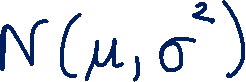 N(μ, σ²)